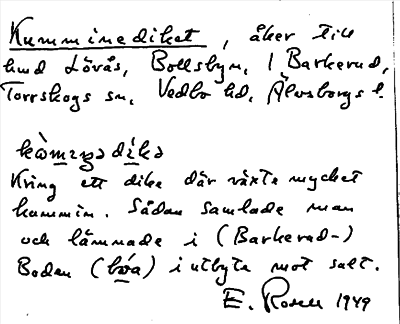 Kumminediket, åker till
hmd Lövås, Bollsbyn, / Barkerud,
Torrskogs sn, Vedbo hd, Älvsborgs l.
kòmənədíkə
Kring ett dike där växte mycket
kummin. Sådan samlade man
och lämnade i (Barkerud-)
Boden (bóa) i utbyte mot salt.
E. Rosell 1949